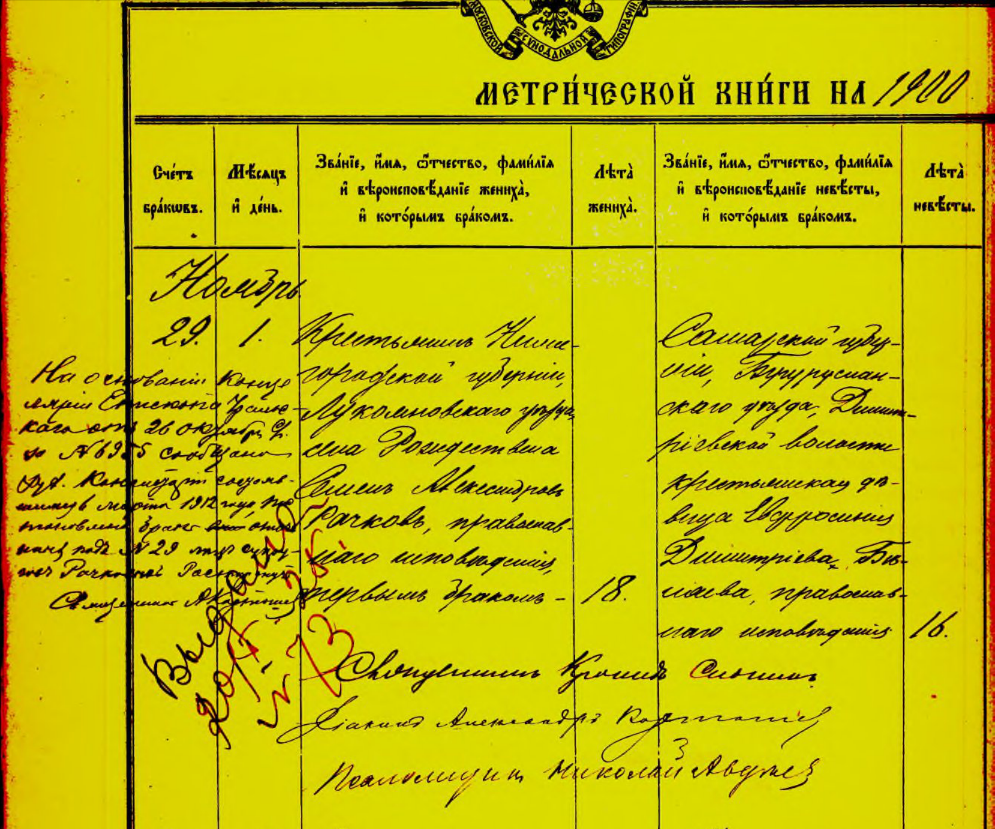 МОСКОВСКОЙ СѴНОДАЛЬНОЙ ТИПОГРАФІИ
МЕТРИ́ЧЕСКОЙ КНИ́ГИ НА 1900
Сче́тъ
бра́кѡвъ.
Мѣ́сѧцъ
и҆ де́нь.
Зва́нїе, и҆́мѧ, ѻ҆́тчество, фамѝлїѧ
и҆ вѣроисповѣ́данїе жениха̀,
и҆ кото́рымъ бра́комъ.
Лѣта̀
жениха̀.
Зва́нїе, и҆́мѧ, ѻ҆́тчество, фамѝлїѧ
и҆ вѣроисповѣ́данїе невѣ́сты,
и҆ кото́рымъ бра́комъ.
Лѣта̀
невѣ́сты.
Ноябрь
29. 1.
Крестьянинъ Ниже-
городской губерніи,
Лукояновскаго уѣзда,
села Рождествена
Семенъ Александровъ
Рачковъ, православ-
наго исповѣданія,
первымъ бракомъ –
18.
Самарской губер-
ніи, Бугуруслан-
скаго уѣзда, Димит-
ріевской волости
крестьянская дѣ-
вица Евфросинія
Димитріева, Бѣ-
ляева, православ-
наго исповѣданія
16.
На основаніи
26 октября
№ 6955 сообщено
марта 1912 года
бракъ
подъ № 29
Священникъ
Выдано
№ 73
Священникъ
Діаконъ Александръ
Псаломщикъ Николай Авдѣев